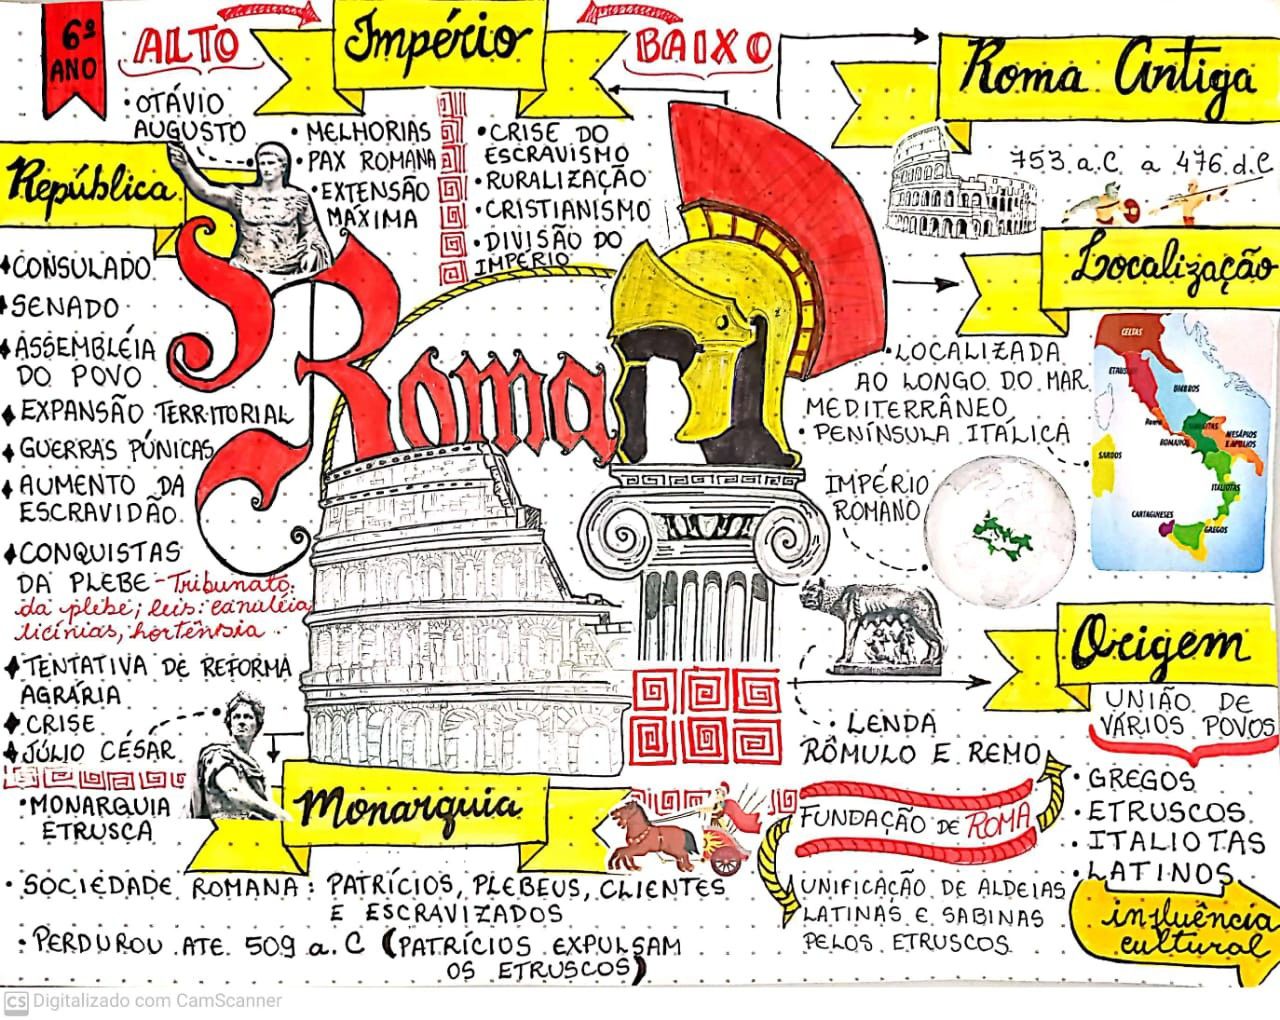 6º
ANO
ALTO
Império
BAIXO
Roma Antiga
753 a.C a 476 d.C
• OTÁVIO
AUGUSTO
• MELHORIAS
• PAX ROMANA
• EXTENSÃO
MÁXIMA
• CRISE DO
ESCRAVISMO
• RURALIZAÇÃO
• CRISTIANISMO
• DIVISÃO DO
IMPÉRIO
República
CONSULADO
SENADO
ASSEMBLÉIA
DO POVO
EXPANSÃO TERRITORIAL
GUERRAS PÚNICAS
AUMENTO DA
ESCRAVIDÃO
CONQUISTAS
DA PLEBE - Tribunato
da plebe; leis: canuléia
licínias, hortênsia
TENTATIVA DE REFORMA
AGRÁRIA
CRISE
JÚLIO CÉSAR
Roma
Localização
• LOCALIZADA
AO LONGO DO MAR
MEDITERRÂNEO
• PENÍNSULA ITÁLICA
IMPÉRIO
ROMANO
CELTAS
SARDOS
ITALIOTAS
CARTAGINESES
GREGOS
Origem
UNIÃO DE
VÁRIOS POVOS
• GREGOS
• ETRUSCOS
• ITALIOTAS
• LATINOS
influência
cultural
• LENDA
RÔMULO E REMO
FUNDAÇÃO DE ROMA
UNIFICAÇÃO DE ALDEIAS
LATINAS E SABINAS
PELOS ETRUSCOS
Monarquia
• MONARQUIA
ETRUSCA
• SOCIEDADE ROMANA: PATRÍCIOS, PLEBEUS, CLIENTES
E ESCRAVIZADOS
• PERDUROU ATE 509 a.C (PATRÍCIOS EXPULSAM
OS ETRUSCOS)
CS Digitalizado com CamScanner